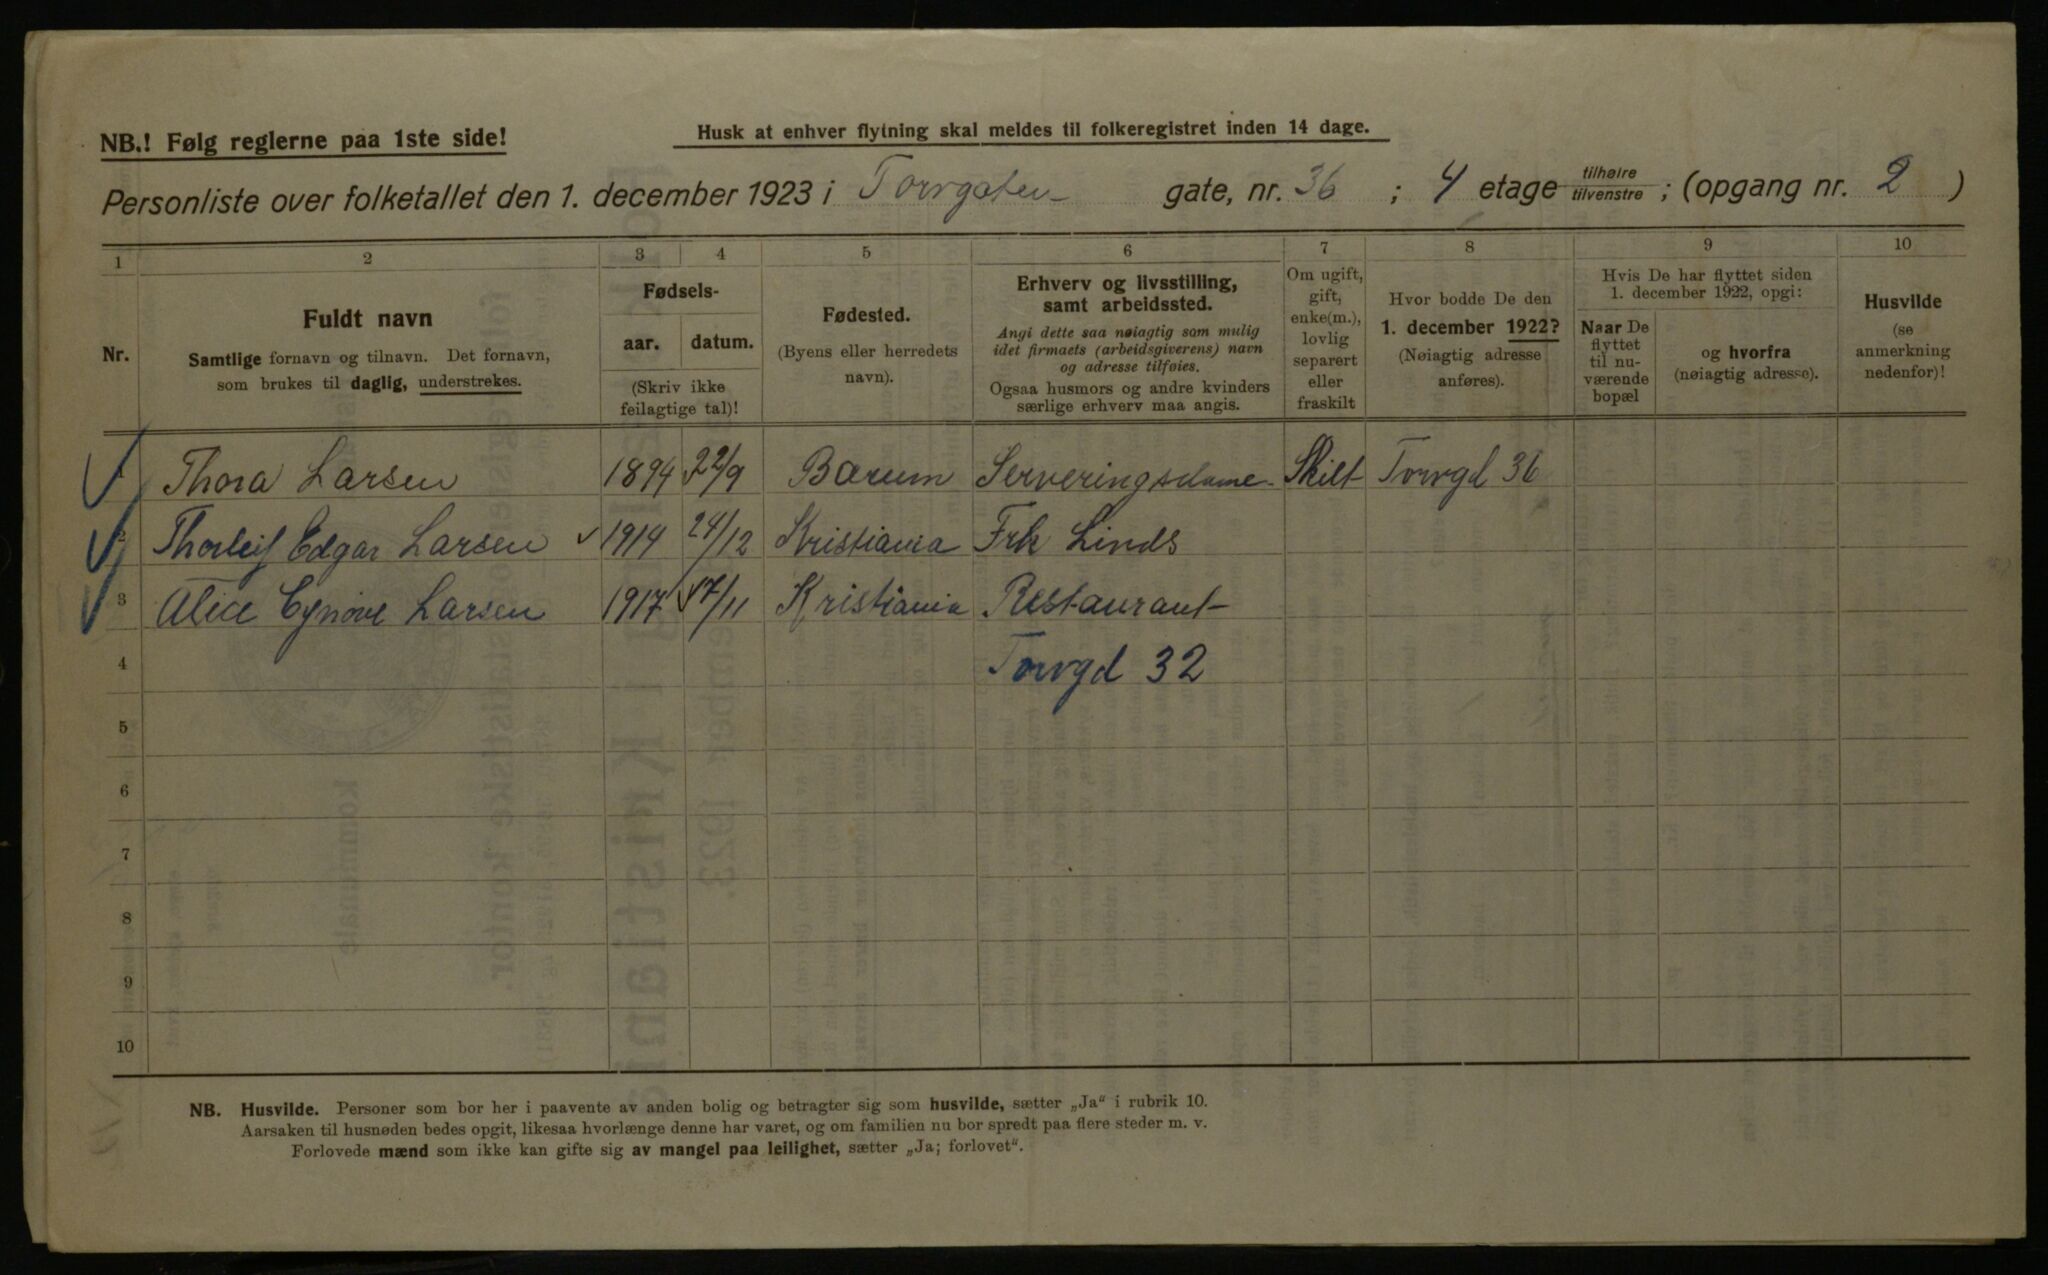 NB.! Følg reglerne paa 1ste side!
Husk at enhver flytning skal meldes til folkeregistret inden 14 dage.
Personliste over folketallet den 1. december 1923 i Torvgaten gate, nr. 36 ; 4 etage tilhøire / tilvenstre ; (opgang nr. 2 )
1 2 3 4 5 6 7 8 9 10
Nr.
Fuldt navn
Samtlige fornavn og tilnavn. Det fornavn,
som brukes til daglig, understrekes.
Fødsels-
aar. datum.
(Skriv ikke
feilagtige tal)!
Fødested.
(Byens eller herredets
navn).
Erhverv og livsstilling,
samt arbeidssted.
Angi dette saa nøiagtig som mulig
idet firmaets (arbeidsgiverens) navn
og adresse tilføies.
Ogsaa husmors og andre kvinders
særlige erhverv maa angis.
Om ugift,
gift,
enke(m.),
lovlig
separert
eller
fraskilt
Hvor bodde De den
1. december 1922?
(Nøiagtig adresse
anføres).
Hvis De har flyttet siden
1. december 1922, opgi:
Naar De
flyttet
til nu-
værende
bopæl
og hvorfra
(nøiagtig adresse).
Husvilde
(se
anmerkning
nedenfor)!
1 Thora Larsen 1894 22/9 Bærum Serveringsdame Skilt Torvgd 36
2 Thorleif Edgar Larsen 1914 24/12 Kristiania Frk Linds
3 Alice Synove Larsen 1917 17/11 Kristiania Restaurant
4 Torvgd 32
5
6
7
8
9
10
NB. Husvilde. Personer som bor her i paavente av anden bolig og betragter sig som husvilde, sætter „Ja“ i rubrik 10.
Aarsaken til husnøden bedes opgit, likesaa hvorlænge denne har varet, og om familien nu bor spredt paa flere steder m. v.
Forlovede mænd som ikke kan gifte sig av mangel paa leilighet, sætter „Ja; forlovet“.